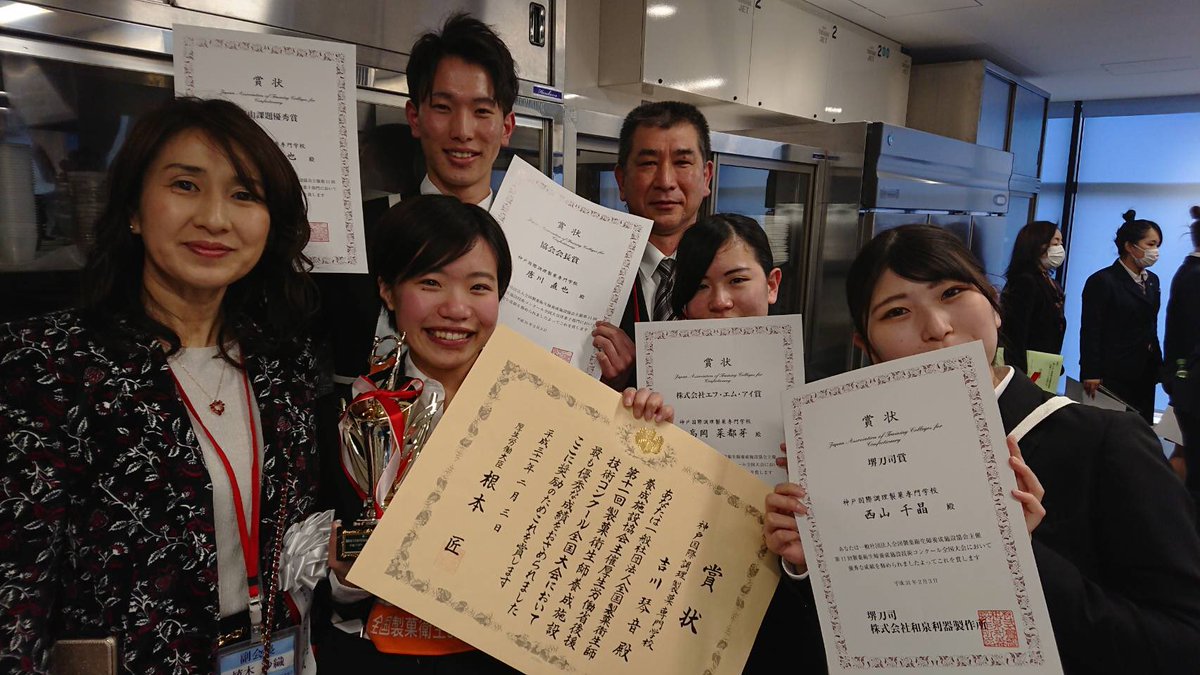 賞状
Japan Association of Training Colleges for
Confectionery
由課題優秀賞
専門学校
也 殿
賞状
協会会長賞
神戸国際調理製菓専門学校
唐川 直也 殿
賞状
Japan Association of Training Colleges for
Confectionery
株式会社エフ・エム・アイ賞
神戸国際調理製菓専門学校
高岡 菜都芽 殿
賞状
Japan Association of Training Colleges for
Confectionery
堺刀司賞
神戸国際調理製菓専門学校
西山 千晶 殿
あなたは一般社団法人全国製菓衛生師養成施設協会主催
第11回製菓衛生師養成施設技術コンクール全国大会において
優秀な成績を修められましたよってこれを賞します
平成31年2月3日
堺刀司
株式会社和泉利器製作所
賞状
神戸国際調理製菓専門学校
吉川 琴音 殿
あなたは一般社団法人全国製菓衛生師
養成施設協会主催厚生労働省後援
第十一回製菓衛生師養成施設
技術コンクール全国大会において
最も優秀な成績をおさめられました
ここに奨励のためこれを賞します
平成三十一年二月三日
厚生労働大臣 根本 匠
全国製菓衛生
副会長
200